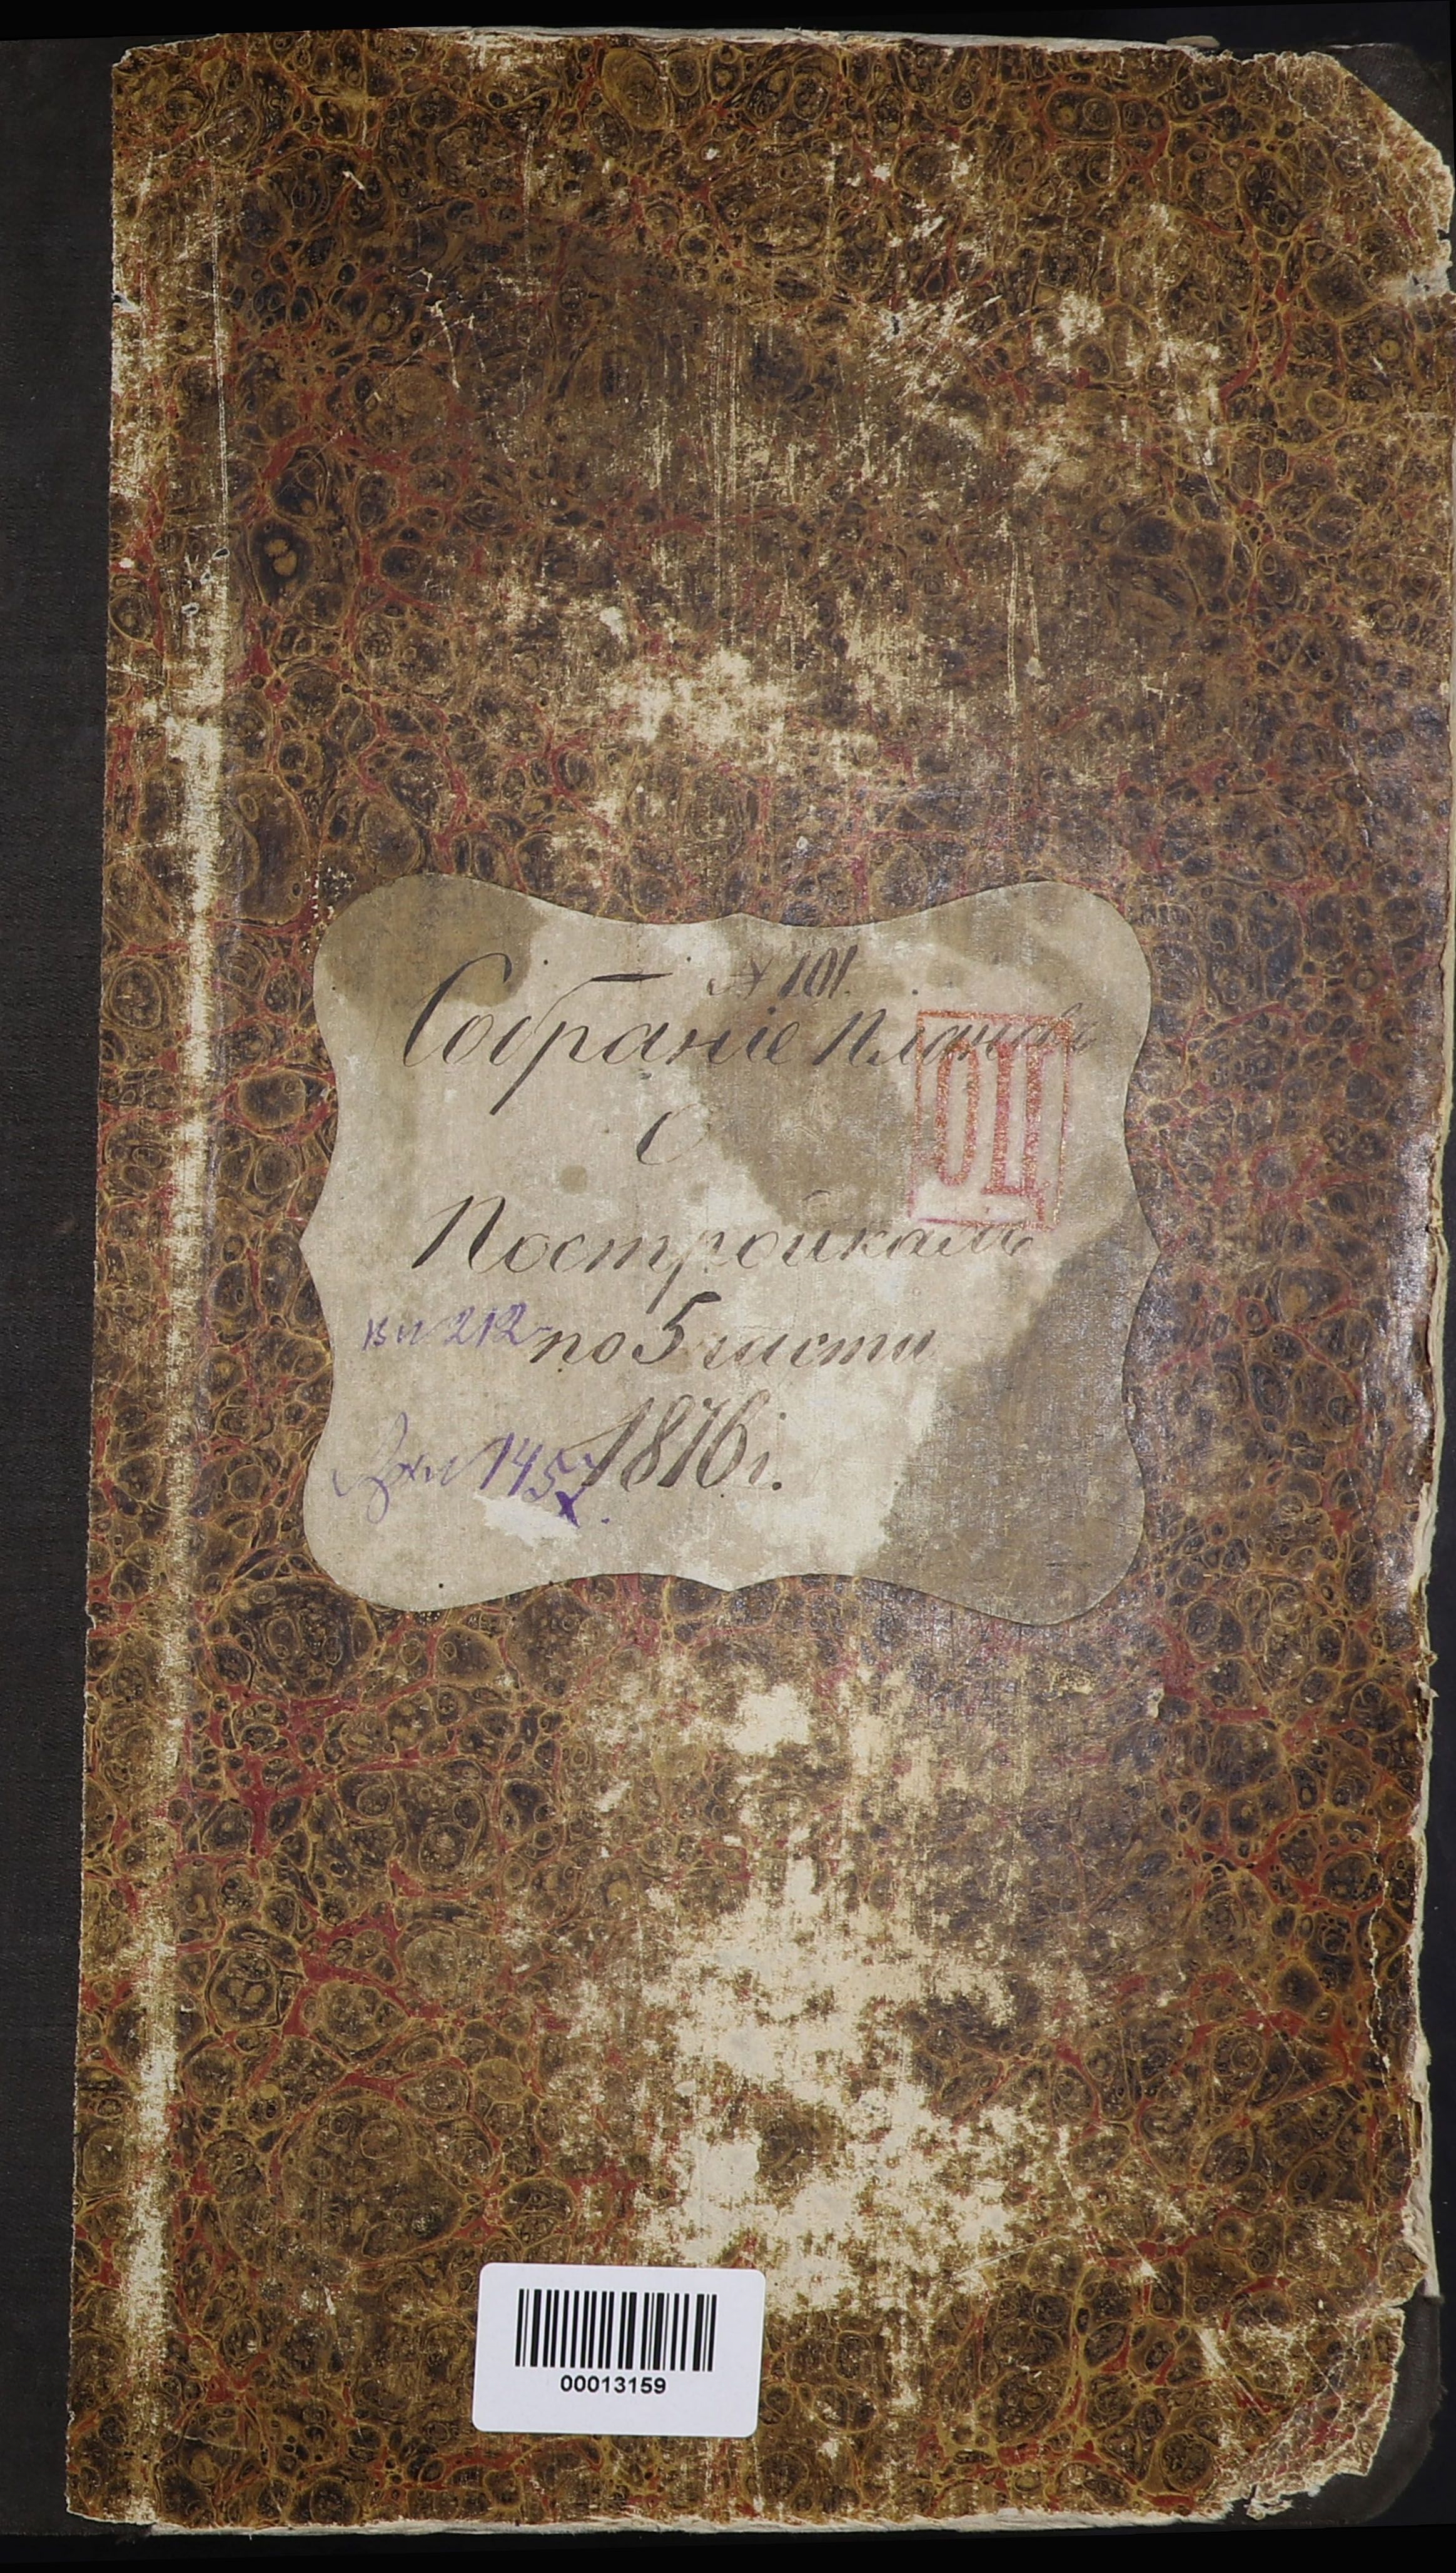 № 101.
Собраніе Плановъ
О
Постройкамъ
по 5 части
1876 г.
ви 212
1457
ОЦ
00013159